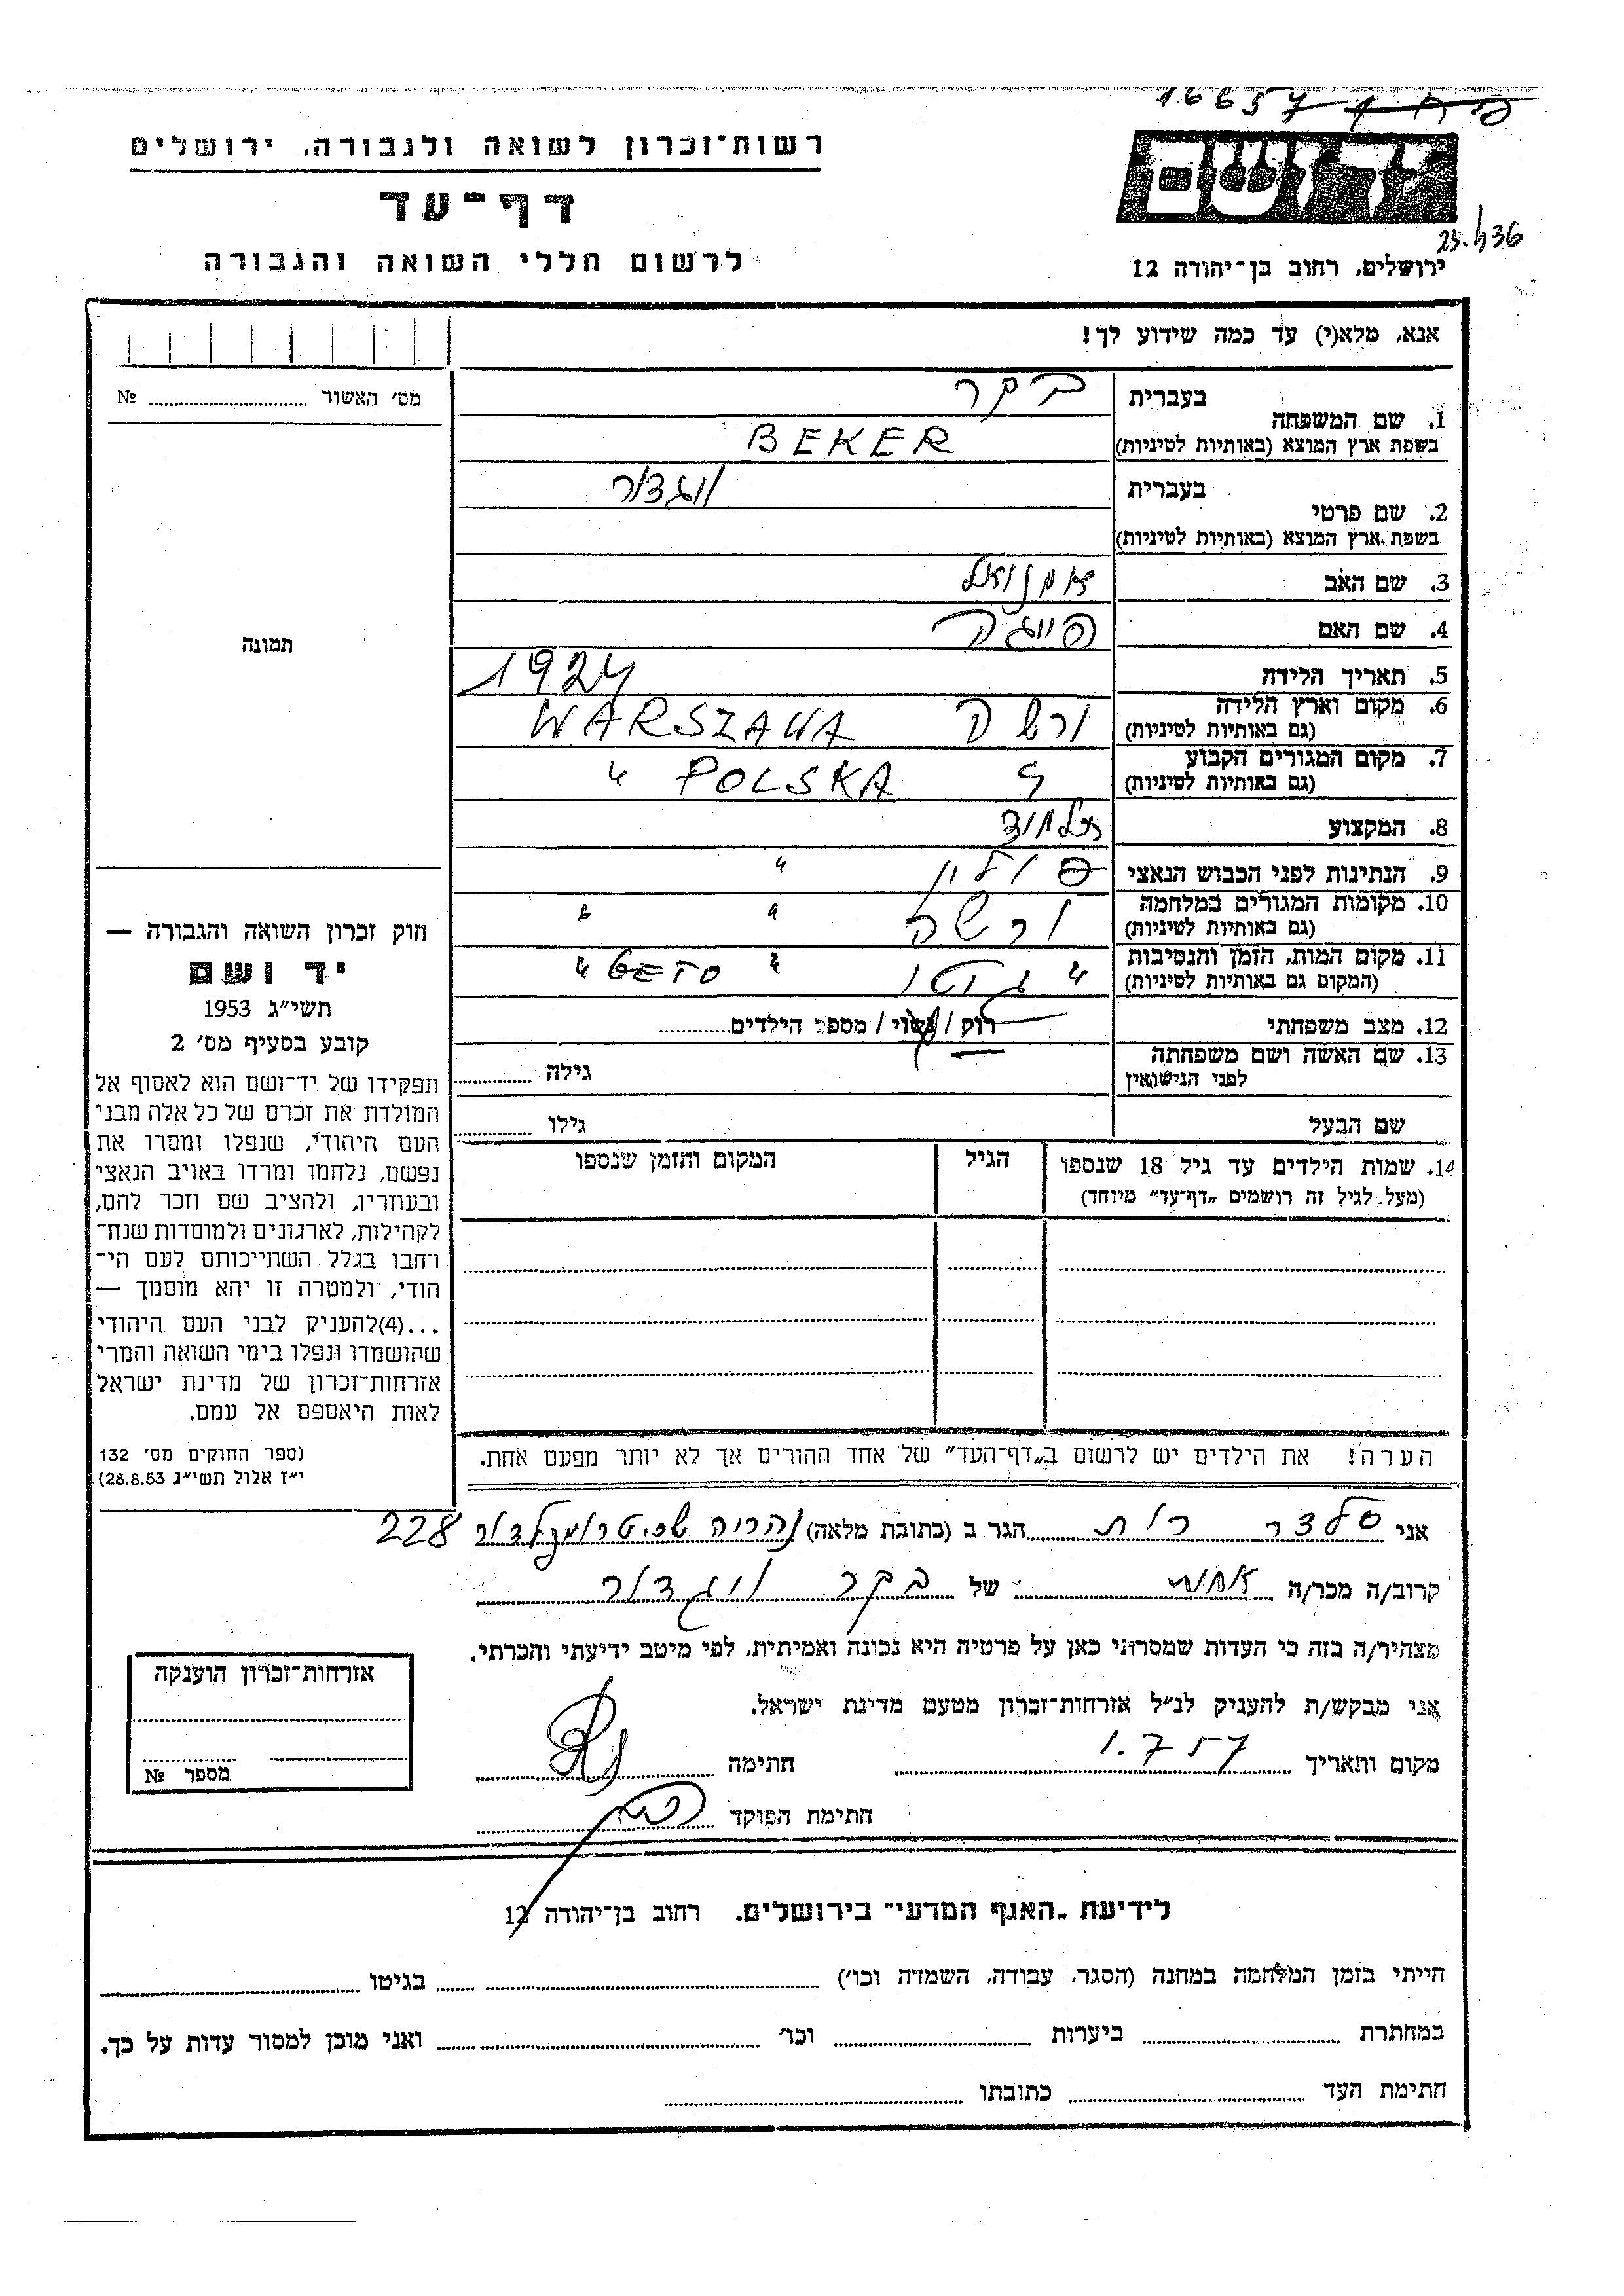 16657
רשות־זכרון לשואה ולגבורה, ירושלים
דף־עד
לרשום חללי השואה והגבורה
יד ושם
ירושלים, רחוב בן־יהודה 12
אנא, מלא(י) עד כמה שידוע לך!
מס׳ האשור № 
1. שם המשפחה
בעברית בקר
בשפת ארץ המוצא (באותיות לטיניות) BEKER
2. שם פרטי
בעברית ויגדור
בשפת ארץ המוצא (באותיות לטיניות)
3. שם האב עמנואל
4. שם האם פייגה
5. תאריך הלידה 1924
6. מקום וארץ הלידה ורשה WARSZAWA
(גם באותיות לטיניות)
7. מקום המגורים הקבוע " POLSKA "
(גם באותיות לטיניות)
8. המקצוע תלמיד
9. הנתינות לפני הכבוש הנאצי פולין "
10. מקומות המגורים במלחמה ורשה " "
(גם באותיות לטיניות)
11. מקום המות, הזמן והנסיבות " גיטו " GETO "
(המקום גם באותיות לטיניות)
12. מצב משפחתי רוק / נשוי / מספר הילדים
13. שם האשה ושם משפחתה
לפני הנישואין גילה
שם הבעל גילו
14. שמות הילדים עד גיל 18 שנספו הגיל המקום והזמן שנספו
(מעל לגיל זה רושמים „דף־עד״ מיוחד)
הערה! את הילדים יש לרשום ב„דף־העד״ של אחד ההורים אך לא יותר מפעם אחת.
תמונה
חוק זכרון השואה והגבורה —
יד ושם
תשי״ג 1953
קובע בסעיף מס׳ 2
תפקידו של יד־ושם הוא לאסוף אל
המולדת את זכרם של כל אלה מבני
העם היהודי, שנפלו ומסרו את
נפשם, נלחמו ומרדו באויב הנאצי
ובעוזריו, ולהציב שם וזכר להם,
לקהילות, לארגונים ולמוסדות שנח־
רחבו בגלל השתייכותם לעם הי־
הודי, ולמטרה זו יהא מוסמך —
...(4)להעניק לבני העם היהודי
שהושמדו ונפלו בימי השואה והמרי
אזרחות־זכרון של מדינת ישראל
לאות היאספם אל עמם.
(ספר החוקים מס׳ 132
י״ז אלול תשי״ג 28.8.53)
אני סלצר רות הגר ב (כתובת מלאה) נהריה 228
קרוב/ה מכר/ה אחות של בקר ויגדור
מצהיר/ה בזה כי העדות שמסרתי כאן על פרטיה היא נכונה ואמיתית, לפי מיטב ידיעתי והכרתי.
אני מבקש/ת להעניק לנ״ל אזרחות־זכרון מטעם מדינת ישראל.
מקום ותאריך 1.7.57 חתימה
חתימת הפוקד
אזרחות־זכרון הוענקה
מספר №
לידיעת „האגף המדעי״ בירושלים, רחוב בן־יהודה 12
הייתי בזמן המלחמה במחנה (הסגר, עבודה, השמדה וכו׳) בגיטו
במחתרת ביערות וכו׳ ואני מוכן למסור עדות על כך.
חתימת העד כתובתו